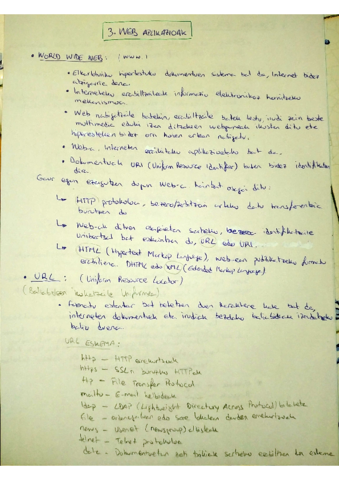 3. WEB APLIKAZIOAK
• WORLD WIDE WEB: (www)
• Elkarlotutako hipertestuko dokumentuen sistema bat da, Internet bidez
atzigarria dena.
• Interneteko erabiltzaileak informazio elektronikoaz hornitzeko
mekanismoa.
• Web nabigatzaile batekin, erabiltzaile batek testu, irudi zein beste
multimedia eduki izan ditzakeen webguneak ikusten ditu eta
hiperesteken bidez orri hauen artean nabigatu.
• Web-a, Interneten aplikazioetako bat da.
• Dokumentuak URI (Uniform Resource Identifier) baten bidez identifikatzen
dira.
Gaur egun ezagutzen dugun Web-ak hainbat osagai ditu:
HTTP protokoloa, bezero/zerbitzari arteko datu transferentziak
burutzen du
Web-ak dituen sarbideko, identifikatzaile
unibertsal bat eskaintzen du, URL edo URI
HTML (Hypertext Markup Language), web-ean publikatzeko formatu
erabiliena. DHTML edo XML (extended Markup Language)
• URL: (Uniform Resource Locator)
(Baliabideen kokatzaile uniformea)
• Formatu estandar bat betetzen duen karaktere kate bat da,
interneten dokumentuak eta irudiak bezalako baliabideak izendatzeko
balio duena.
URL ESKEMA:
http - HTTP errekurtsoak
https - SSL-n HTTPak
ftp - File Transfer Protocol
mailto - E-mail helbideak
ldap - LDAP (Lightweight Directory Access Protocol) bilaketak
file - ordenagailuan edo sare lokalean dauden errekurtsoak
news - Usenet (newsgroup) albisteak
telnet - Telnet protokoloa
data - Dokumentuetan zati txikiak sartzeko erabiltzen den eskema